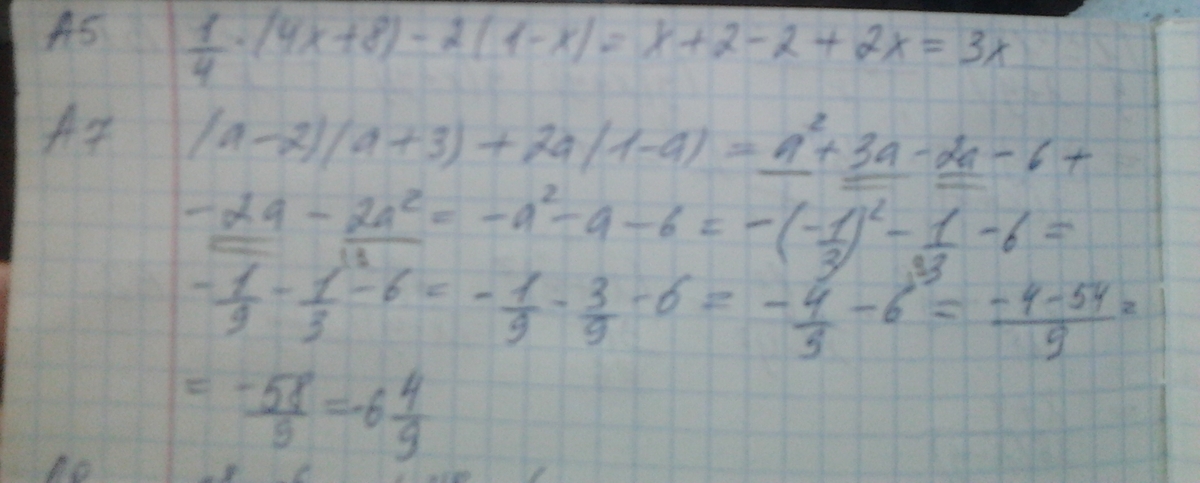 A5 1/4 · (4x+8) - 2(1-x) = x+2-2+2x = 3x
A7 (a-2)(a+3) + 2a(1-a) = a² + 3a - 2a - 6 +
- 2a - 2a² = -a² - a - 6 = -(-1/3)² - 1/3 - 6 =
- 1/9 - 1/3 - 6 = - 1/9 - 3/9 - 6 = - 4/9 - 6 = (-4-54)/9 =
= -58/9 = -6 4/9